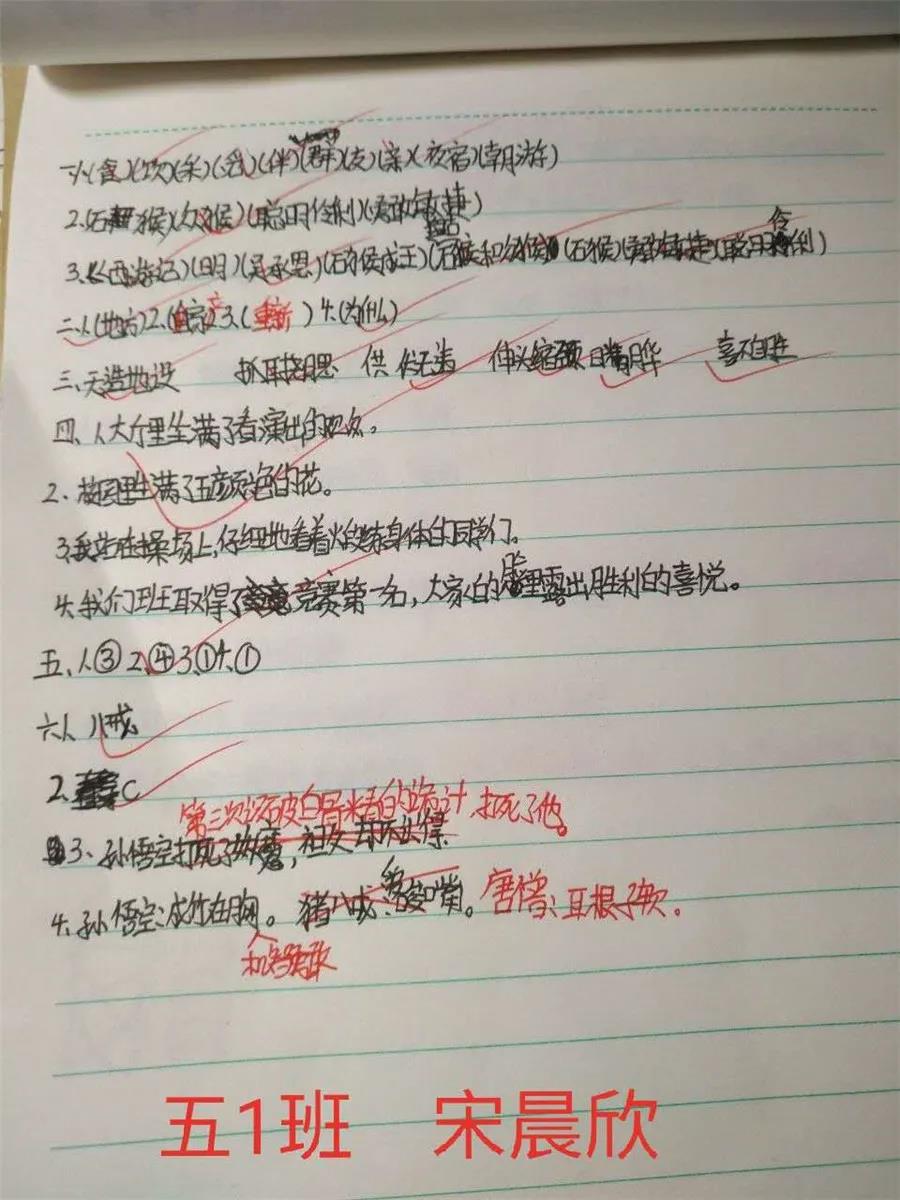 一、1.(食)(饮)(采)(觅)(伴)(群)(友)(亲)(夜宿)(朝游)
2.(石猴)(众猴)(聪明伶俐)(勇敢敏捷)
3.《西游记》(明)(吴承恩)(石猴成王)(石猴和众猴)(石猴)(勇敢敏捷)(聪明伶俐)
二、1.(地方)2.()3.(重新)4.(为什么)
三、天造地设 抓耳挠腮 伸头缩颈 喜不自胜
四、1.大厅里坐满了看演出的观众。
2、花园里生满了五颜六色的花。
3.我站在操场上,仔细地看着火段练身体的同学们。
4.我们班取得了竞赛第一名,大家的脸里露出胜利的喜悦。
五、1.③2.④3.①4.①
六、1.八戒
2.C
第三次识破白骨精的诡计,打死了他。
3、孙悟空打死了妖魔,
4.孙悟空:成竹在胸。猪八戒:嘴。唐僧:耳根子软。
机智勇敢
五1班 宋晨欣